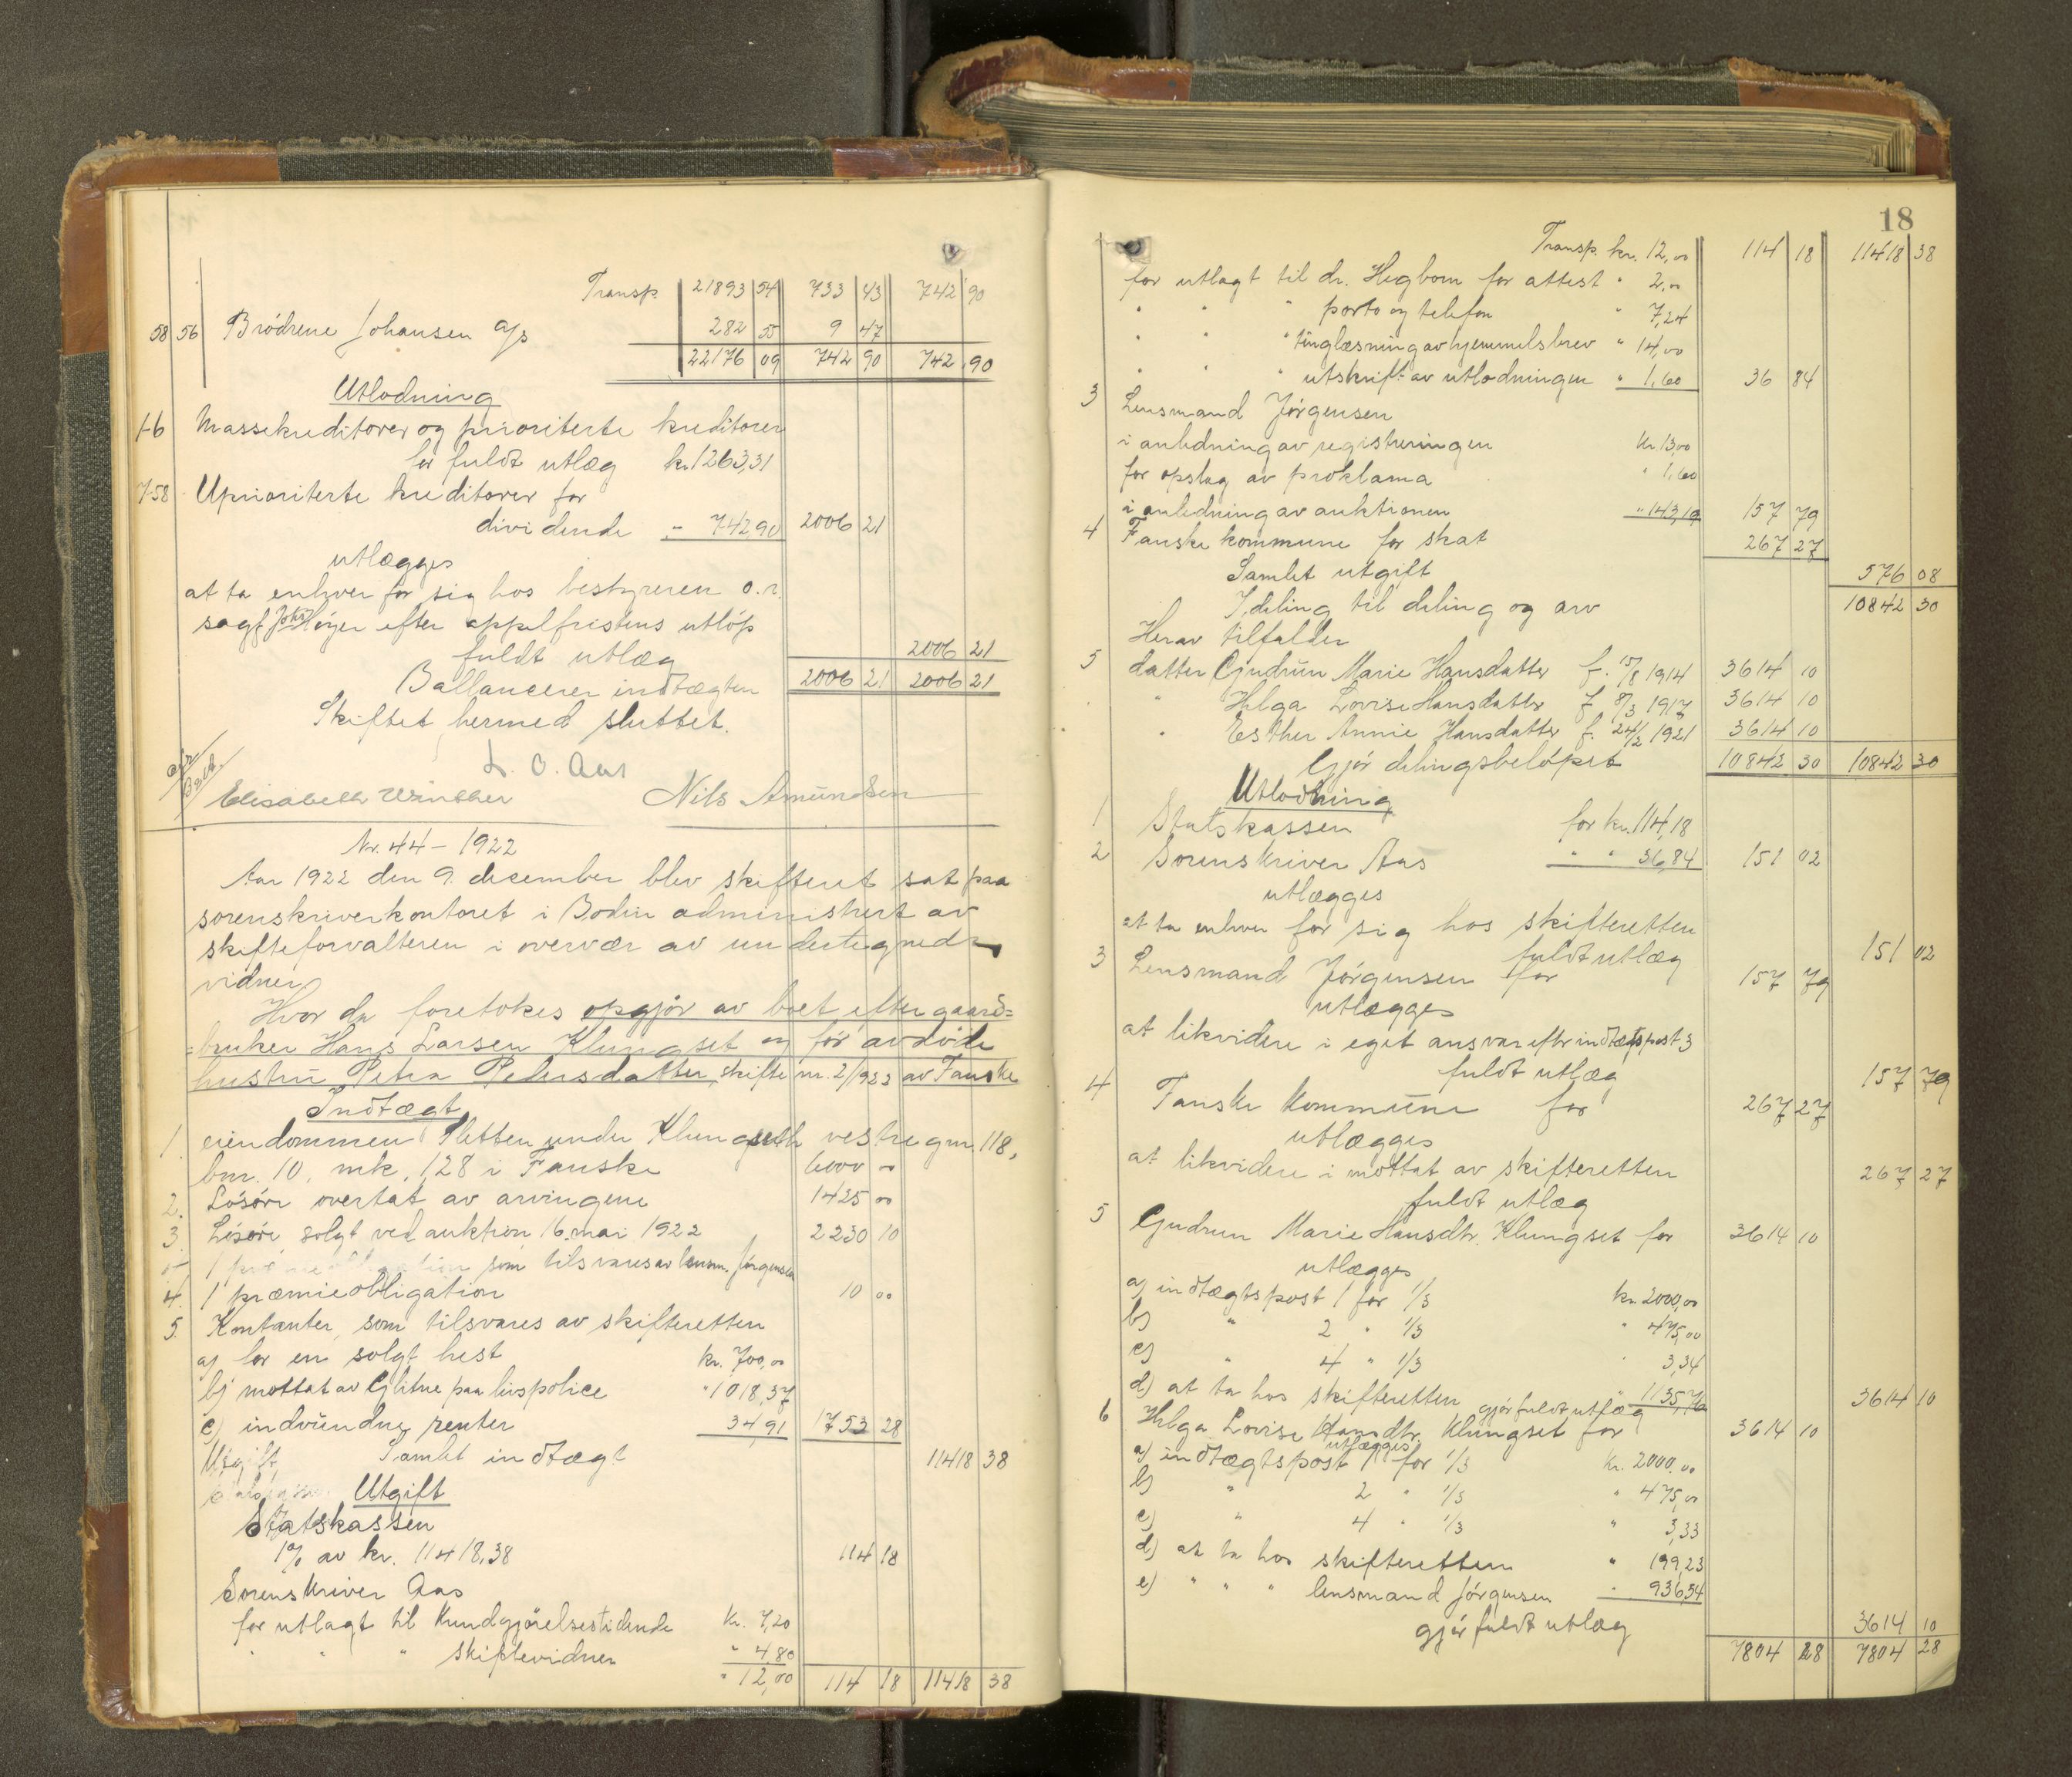 Transp. 21893 54 733 43 742 90
58 56 Brødrene Johansen a/s 282 55 9 47
22176 09 742 90 742 90
Utlodning
1-6 Massekreditorer og prioriterte kreditorer
for fuldt utlæg kr. 1263,31
7-58 Uprioriterte kreditorer for
dividende " 742,90 2006 21
utlægges
at ta enhver for sig hos bestyreren o.r.
sagf. Johs. Høyer efter appelfristens utløp
fuldt utlæg 2006 21
Ballancerer indtægten 2006 21 2006 21
Skiftet hermed sluttet.
L. O. Aas
Elisabeth Winther Nils Amundsen
Nr. 44 - 1922
Aar 1922 den 9. december blev skifteret sat paa
sorenskriverkontoret i Bodin administrert av
skifteforvalteren i overvær av undertegnede
vidner
Hvor da foretokes opgjør av boet efter gaard=
=bruker Hans Larsen Klungset og før avdøde
hustru Petra Pedersdatter, skifte nr. 2/1922 av Fauske
Indtægt
1. eiendommen Sletten under Klungseth vestre gnr. 118,
bnr. 10, mk. 1,28 i Fauske 6000 00
2. Løsøre overtat av arvingene 1425 00
3. Løsøre solgt ved auktion 16. mai 1922 2230 10
som tilsvares av lensm. Jørgensen
4. 1 præmieobligation 10 00
5. Kontanter, som tilsvares av skifteretten
a) for en solgt hest kr. 700,00
b) mottat av Glitne paa livspolice " 1018,37
c) indvundne renter 34,91 1753 28
Utgift Samlet indtægt 11418 38
Utgift
Statskassen
1% av kr. 11418,38 114 18
Sorenskriver Aas
for utlagt til Kundgjørelsestidende kr. 7,20
" " " skiftevidner " 4,80
" 12,00 114 18 11418 38
18
Transp. kr. 12,00 114 18 11418 38
for utlagt til dr. Hegbom for attest " 2,00
" " " porto og telefon " 7,24
" " " tinglæsning av hjemmelsbrev " 14,00
" " " utskrift av utlodningen " 1,60 36 84
3 Lensmand Jørgensen
i anledning av registreringen kr. 13,00
for opslag av proklama " 1,60
i anledning av auktionen " 143,19 157 79
4 Fauske kommune for skat 267 27
Samlet utgift 576 08
I deling til deling og arv 10842 30
Herav tilfalder
5 datter Gudrun Marie Hansdatter f. 15/8 1914 3614 10
" Helga Lovise Hansdatter f. 8/3 1917 3614 10
" Esther Annie Hansdatter f. 24/2 1921 3614 10
Gjør delingsbeløpet 10842 30 10842 30
Utlodning
1 Statskassen for kr. 114,18
2 Sorenskriver Aas " " 36,84 151 02
utlægges
at ta enhver for sig hos skifteretten
fuldt utlæg 151 02
3 Lensmand Jørgensen for 157 79
utlægges
at likvidere i eget ansvar efter indtægtspost 3
fuldt utlæg 157 79
4 Fauske kommune for 267 27
utlægges
at likvidere i mottat av skifteretten 267 27
fuldt utlæg
5 Gudrun Marie Hansdtr. Klungset for 3614 10
utlægges
a) indtægtspost 1 for 1/3 kr. 2000,00
b) " 2 " 1/3 " 475,00
c) " 4 " 1/3 " 3,34
d) at ta hos skifteretten " 1135,76
gjør fuldt utlæg 3614 10
6 Helga Lovise Hansdtr. Klungset for 3614 10
utlægges
a) indtægtspost 1 for 1/3 kr. 2000,00
b) " 2 " 1/3 " 475,00
c) " 4 " 1/3 " 3,33
d) at ta hos skifteretten " 199,23
e) " " " lensmand Jørgensen " 936,54
gjør fuldt utlæg 3614 10
7804 28 7804 28